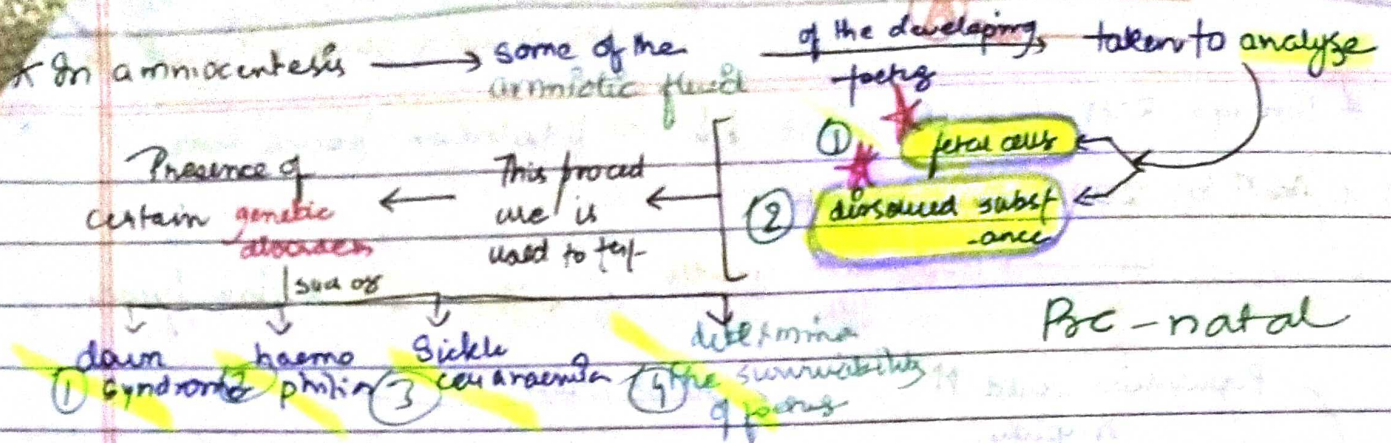 * In amniocentesis → some of the amniotic fluid → of the developing foetus taken to analyse
① fetal cells
② dissolved subst
-ance
This proced
ure is
used to test
Presence of
certain genetic
disorders
such as
① down
syndrome
② haemo
philia
③ Sickle
cell anaemia
④ determine
the survivability
of foetus
Pre-natal